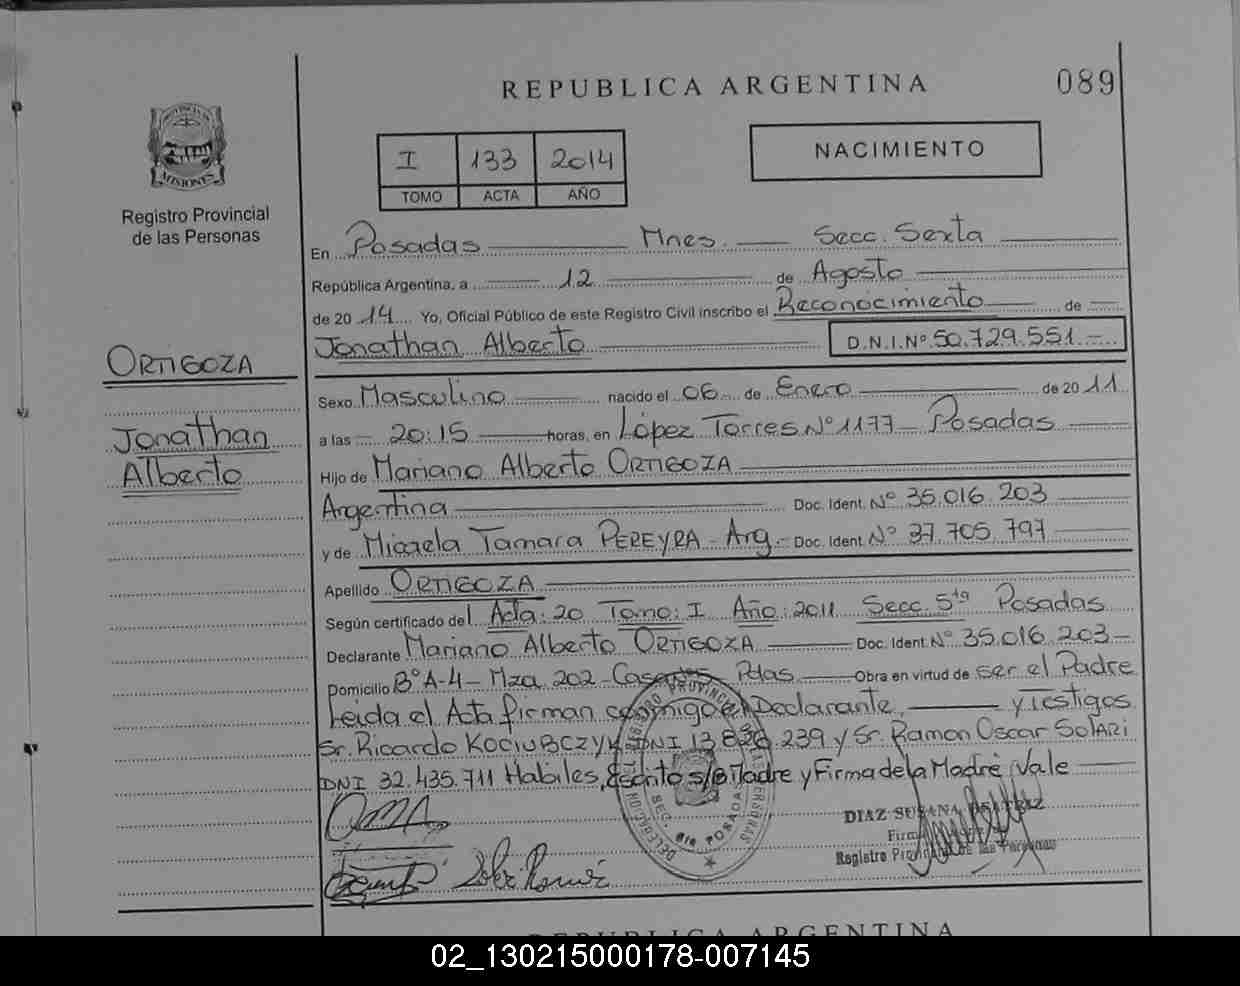 REPUBLICA ARGENTINA
089
PROVINCIA DE
MISIONES
Registro Provincial
de las Personas
I 133 2014
TOMO ACTA AÑO
NACIMIENTO
En Posadas Mnes. Secc. Sexta
República Argentina, a 12 de Agosto
de 2014 Yo, Oficial Público de este Registro Civil inscribo el Reconocimiento de
Jonathan Alberto D.N.I.Nº 50.729.551.-
ORTIGOZA
Jonathan
Alberto
Sexo Masculino nacido el 06 de Enero de 2011
a las 20:15 horas, en López Torres Nº 1177 - Posadas
Hijo de Mariano Alberto ORTIGOZA
Argentina Doc. Ident. Nº 35.016.203
y de Micaela Tamara PEREYRA - Arg.- Doc. Ident. Nº 37.705.797
Apellido ORTIGOZA
Según certificado del Acta: 20 Tomo: I Año: 2011 Secc. 5ta Posadas
Declarante Mariano Alberto ORTIGOZA Doc. Ident. Nº 35.016.203-
Domicilio Bº A-4- Mza 202- Pdas Obra en virtud de ser el Padre
Leida el Acta firman conmigo el Declarante, y Testigos
Sr. Ricardo KOCIUBCZYK DNI 13.826.239 y Sr. Ramon Oscar SOLARI
DNI 32.435.711 Habiles, Escrito s/B Madre y Firma de la Madre Vale
DIAZ SUSANA BEATRIZ
Registro Provincial de las Personas
REPUBLICA ARGENTINA
02_130215000178-007145